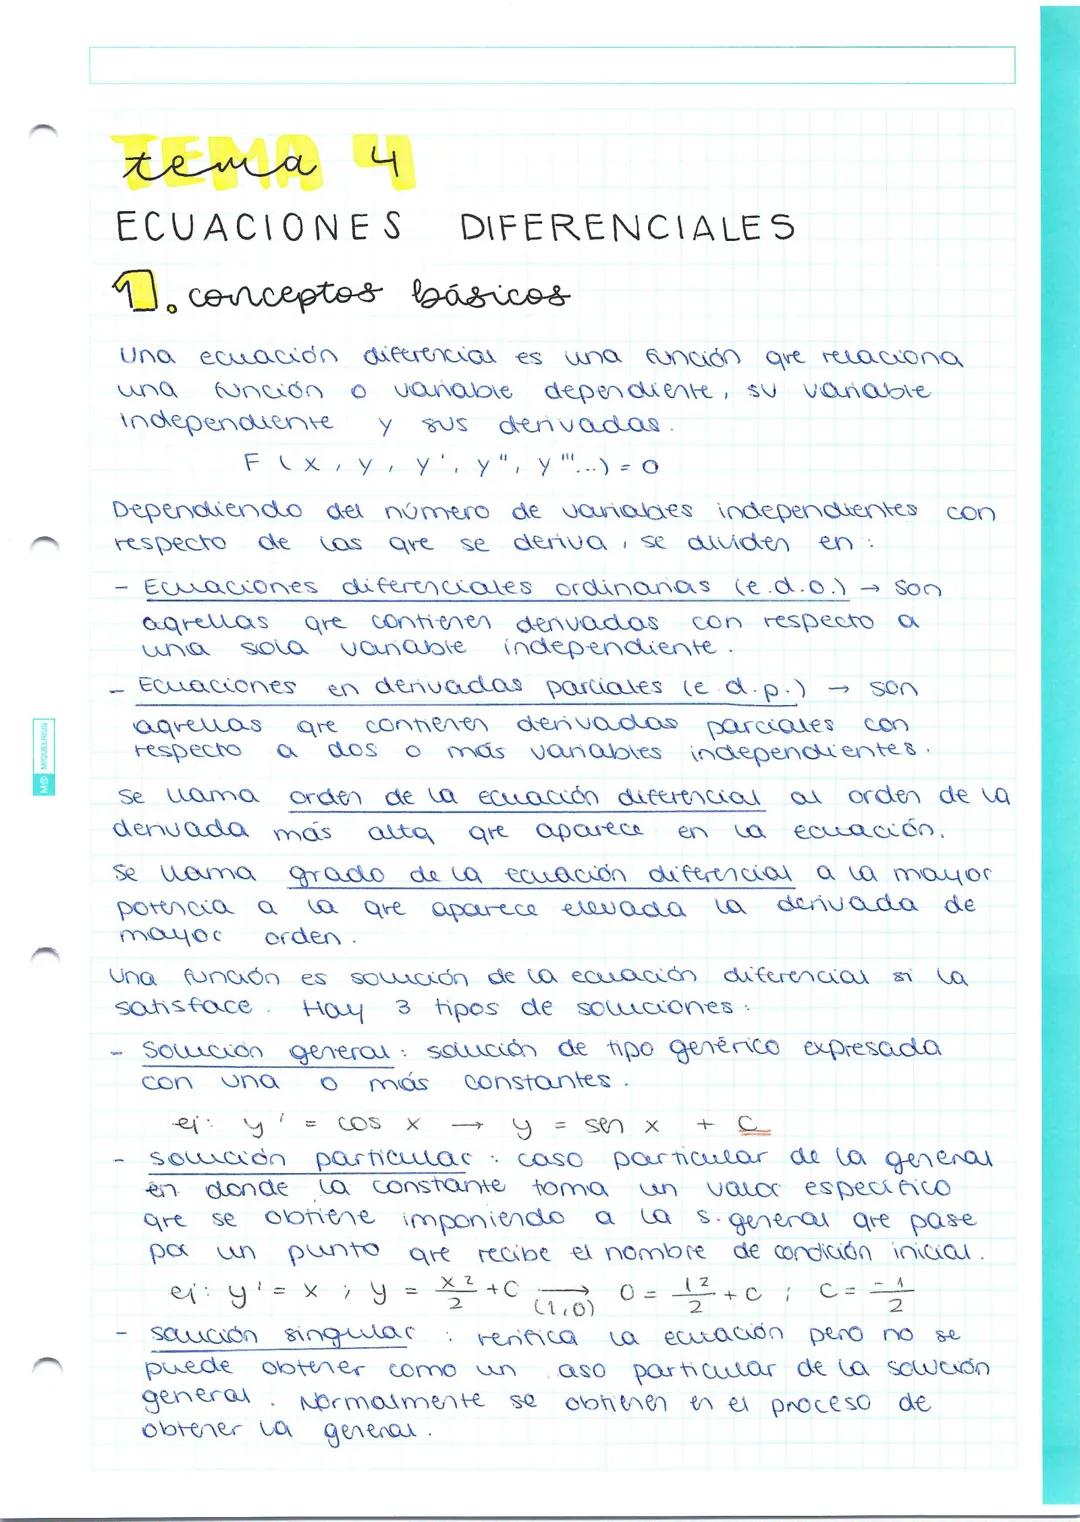 tema 4
ECUACIONES DIFERENCIALES
1. conceptos básicos
Una ecuación diferencial es una función que relaciona
una función o variable dependiente, su variable
independiente y sus derivadas.
F (x, y, y', y'', y'''...) = 0
Dependiendo del número de variables independientes con
respecto de las que se deriva, se dividen en:
- Ecuaciones diferenciales ordinarias (e.d.o.) → son
aquellas que contienen derivadas con respecto a
una sola variable independiente.
- Ecuaciones en derivadas parciales (e.d.p.) → son
aquellas que contienen derivadas parciales con
respecto a dos o más variables independientes.
Se llama orden de la ecuación diferencial al orden de la
derivada más alta que aparece en la ecuación.
Se llama grado de la ecuación diferencial a la mayor
potencia a la que aparece elevada la derivada de
mayor orden.
Una función es solución de la ecuación diferencial si la
satisface. Hay 3 tipos de soluciones:
- Solución general: solución de tipo genérico expresada
con una o más constantes.
ej: y' = cos x → y = sen x + C
- solución particular: caso particular de la general
en donde la constante toma un valor específico
que se obtiene imponiendo a la s. general que pase
por un punto que recibe el nombre de condición inicial.
ej: y' = x ; y = x²/2 + C →(1,0) 0 = 1²/2 + C ; C = -1/2
- solución singular: verifica la ecuación pero no se
puede obtener como un aso particular de la solución
general. Normalmente se obtienen en el proceso de
obtener la general.
MIQUELRIUS